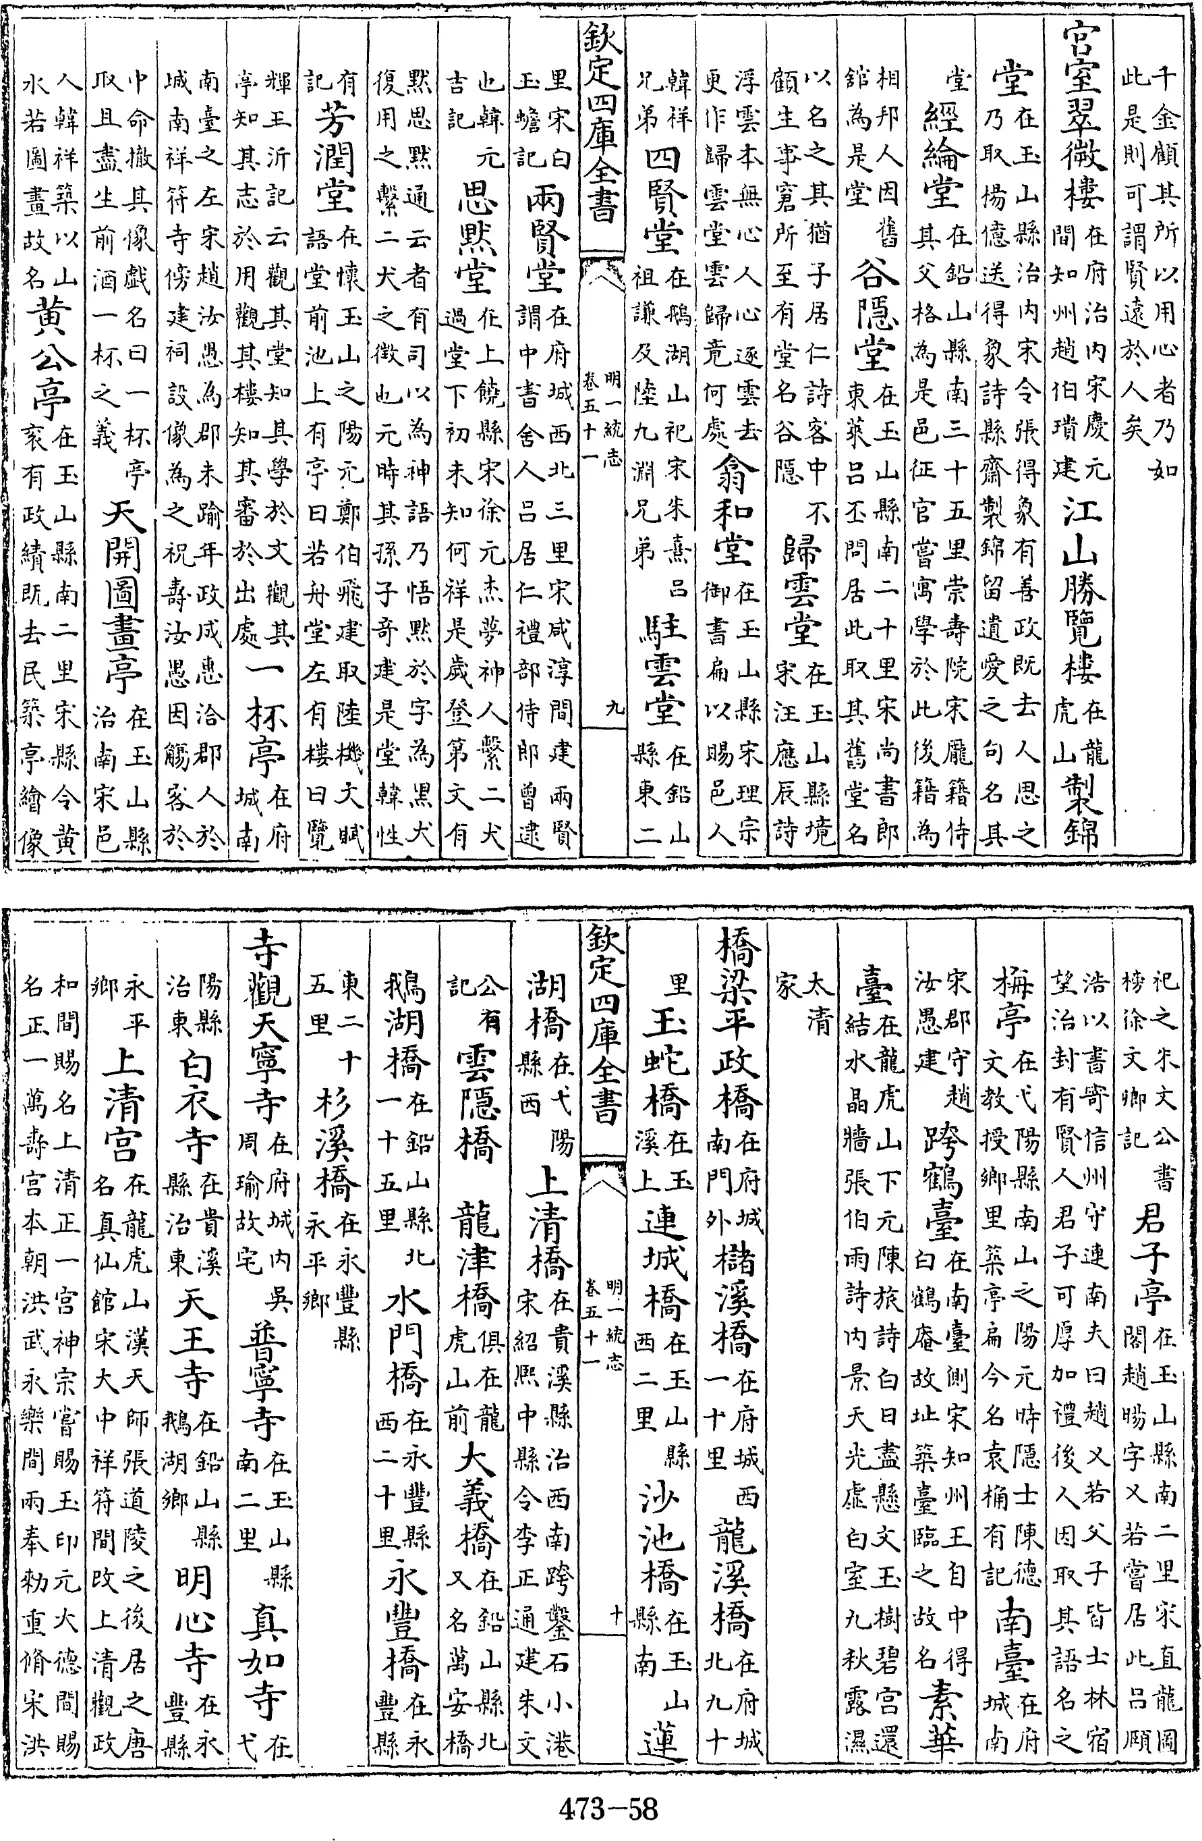 千金顧其所以用心者乃如此是則可謂賢遠於人矣
宮室翠微樓在府治内宋慶元間知州趙伯瓆建江山勝覽樓在龍虎山製錦
堂在玉山縣治内宋令張得象有善政既去人思之乃取楊億送得象詩縣齋製錦留遺愛之句名其
堂經綸堂在鉛山縣南三十五里崇壽院宋龎籍侍其父格為是邑征官嘗寓學於此後籍為
相邦人因舊舘為是堂谷隱堂在玉山縣南二十里宋尚書郎東萊呂丕問居此取其舊堂名
以名之其猶子居仁詩客中不顧生事窘所至有堂名谷隱歸雲堂在玉山縣境宋汪應辰詩
浮雲本無心人心逐雲去更作歸雲堂雲歸竟何處翕和堂在玉山縣宋理宗御書扁以賜邑人
韓祥兄弟四賢堂在鵝湖山祀宋朱熹呂祖謙及陸九淵兄弟駐雲堂在鉛山縣東二
欽定四庫全書 明一統志卷五十一 九
里宋白玉蟾記兩賢堂在府城西北三里宋咸淳間建兩賢謂中書舍人呂居仁禮部侍郎曾逮
也韓元吉記思默堂在上饒縣宋徐元杰夢神人繫二犬過堂下初未知何祥是歲登第文有
默思默通云者有司以為神語乃悟默於字為黑犬復用之繫二犬之徵也元時其孫子奇建是堂韓性
有記芳潤堂在懷玉山之陽元鄭伯飛建取陸機文賦語堂前池上有亭曰若舟堂左有樓曰覽
輝王沂記云觀其堂知其學於文觀其亭知其志於用觀其樓知其審於出處一杯亭在府城南
南臺之左宋趙汝愚為郡未踰年政成惠洽郡人於城南祥符寺傍建祠設像為之祝壽汝愚因觴客於
中命撤其像戲名曰一杯亭取且盡生前酒一杯之義天開圖畫亭在玉山縣治南宋邑
人韓祥築以山水若圖畫故名黄公亭在玉山縣南二里宋縣令黄衮有政績既去民築亭繪像
祀之朱文公書榜徐文卿記君子亭在玉山縣南二里宋直龍圖閣趙暘字又若嘗居此呂頤
浩以書寄信州守連南夫曰趙又若父子皆士林宿望治封有賢人君子可厚加禮後人因取其語名之
梅亭在弋陽縣南山之陽元時隱士陳德文教授鄉里築亭扁今名袁桷有記南臺在府城南
宋郡守趙汝愚建跨鶴臺在南臺側宋知州王自中得白鶴庵故址築臺臨之故名素華
臺在龍虎山下元陳旅詩白日盡懸文玉樹碧宮還結水晶牆張伯雨詩内景天光虛白室九秋露濕
太清家
橋梁平政橋在府城南門外櫧溪橋在府城西一十里龍溪橋在府城北九十
里玉蛇橋在玉溪上連城橋在玉山縣西二里沙池橋在玉山縣南蓮
欽定四庫全書 明一統志卷五十一 十
湖橋在弋陽縣西上清橋在貴溪縣治西南跨鑿石小港宋紹熙中縣令李正通建朱文
公有記雲隱橋 龍津橋俱在龍虎山前大義橋在鉛山縣北又名萬安橋
鵝湖橋在鉛山縣北一十五里水門橋在永豐縣西二十里永豐橋在永豐縣
東二十五里杉溪橋在永豐縣永平鄉
寺觀天寧寺在府城内吳周瑜故宅普寧寺在玉山縣南二里真如寺在弋
陽縣治東白衣寺在貴溪縣治東天王寺在鉛山縣鵝湖鄉明心寺在永豐縣
永平鄉上清宮在龍虎山漢天師張道陵之後居之唐名真仙館宋大中祥符間改上清觀政
和間賜名上清正一宮神宗嘗賜玉印元大德間賜名正一萬壽宮本朝洪武永樂間兩奉勑重脩宋洪
473-58